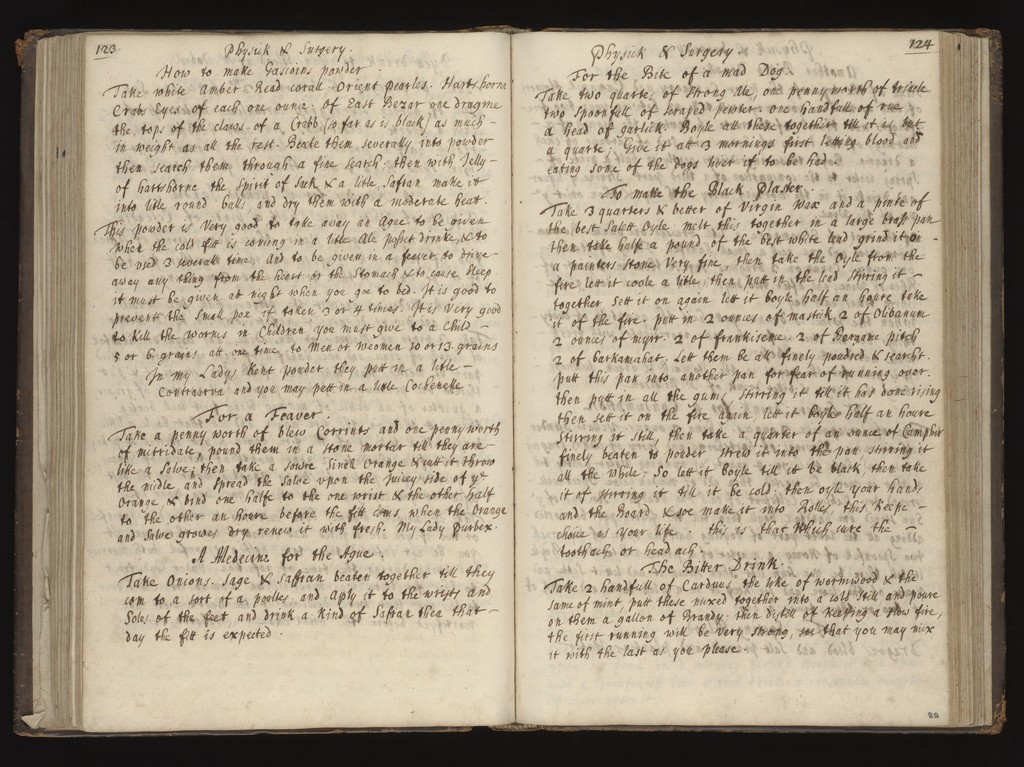 123.
Physick & Surgery.
How to make Gascoins powder
Take white Amber Read corall Orient Pearles. Hartshorne
Crabs Eyes of each one ounce of East Bezar one dragme
the tops of the claws of a Crabb (so far as is black) as much
in weight as all the rest. Beate them severally into powder
then search them through a fine search then with Jelly
of hartshorne the spirit of Sack & a litle Safran make it
into litle round balls and dry them with a moderate heat.
This powder is Very good to take away an Ague to be given
when the cold fitt is coming in a litle Ale posset drinke, & to
be used 3 severall time, and to be given in a feaver to drive
away any thing from the heart or the Stomach & to cause sleep
it must be given at night when you goe to bed. It is good to
prevent the small pox if taken 3 or 4 times. It is Very good
to kill the worms in Children you must give to a Child
5 or 6 grains att one time to Men or Weomen 10 or 13 grains
In my Ladys Kent pouder they putt in a litle
Contraerva and you may putt in a litle Cochenele.
For a Feaver.
Take a penny worth of blew Corrints and one penny worth
of mitridate, pound them in a stone mortar till they are
like a Salve; then take a sowre Sivell Orange & cutt it throw
the midle and spread the Salve upon the Juicey side of ye
Orange & bind one halfe to the one wrist & the other half
to the other an houre before the fitt coms when the Orange
and Salve growes dry renew it with fresh. My Lady Purbex.
A Medecine for the Ague.
Take Onions. Sage & Saffran beaten together till they
com to a sort of a poultes and aply it to the wrists and
Soles of the feet and drink a kind of Safran thea that
day the fitt is expected.
124
Physick & Surgery
For the Bite of a mad Dog
Take two quartes of strong Ale, one penny worth of triacle
two spoonfull of scraped pewter one handfull of rue
a head of garlick. Boyle all these together till it is but
a quarte; Give it att 3 mornings first letting blood and
eating some of the Dogs liver if to be had.
To make the Black Plaster.
Take 3 quarters & better of Virgin Wax and a pinte of
the best Salett Oyle melt this together in a large brass pan
then take halfe a pound of the best white lead grind it on
a painters stone Very fine, then take the Oyle from the
fire lett it coole a litle, then putt in the lead stirring it
together Sett it on again lett it boyle half an houre take
it of the fire. putt in 2 ounces of mastik 2 of Olibanum
2 ounces of myrr. 2 of frankisene. 2 of Bergane pitch
2 of barkamahat. Lett them be all finely poudred & searcht.
putt this pan into another pan for fear of running over.
then putt in all the gums, stirring it till it has done rising
then sett it on the fire again lett it boyle half an houre
Stirring it still, then take a quarter of an ounce of Camphir
finely beaten to pouder strew it into the pan stirring it
all the while. So lett it boyle till it be black then take
it of stirring it till it be cold. then oyle your hands
and the Board & soe make it into Roles this keepe
choise as your life. this is that which cure the
toothach or head ach.
The Bitter Drink.
Take 2 handfull of Carduus the like of wormwood & the
same of mint, putt these mixed together into a cold still and poure
on them a gallon of Brandy. then distill it keeping a slow fire,
the first running will be very strong, soe that you may mix
it with the last as you please.
88